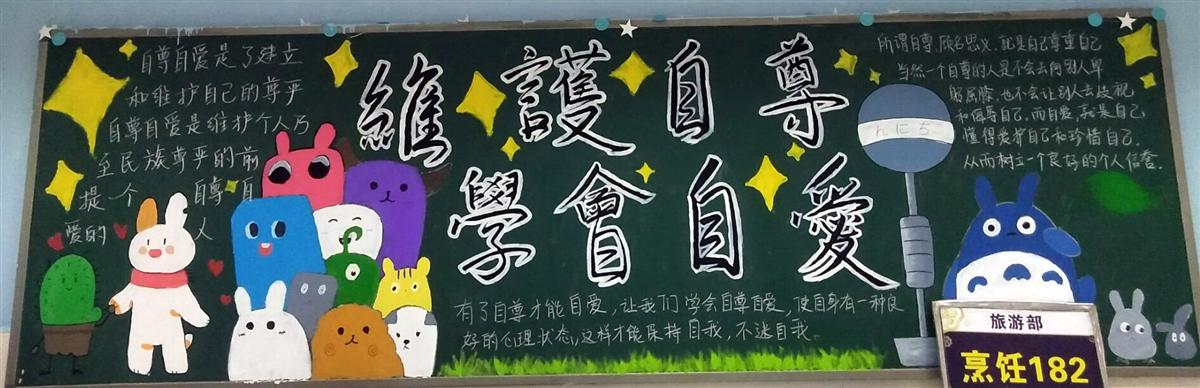 維護自尊
學會自愛
自尊自爱是了建立
和维护自己的尊严
自尊自爱是维护个人乃
至民族尊严的前
提一个 自尊自
爱的 人
有了自尊才能自爱,让我们学会自尊自爱,使自身有一种良
好的心理状态,这样才能保持自我,不迷自我。
所谓自尊,顾名思义,就是自己尊重自己
当然一个自尊的人是不会去向别人卑
躬屈膝,也不会让别人去歧视
和侮辱自己,而自爱,就是自己
懂得爱护自己和珍惜自己.
从而树立一个良好的个人信誉.
んにち
旅游部
烹饪182